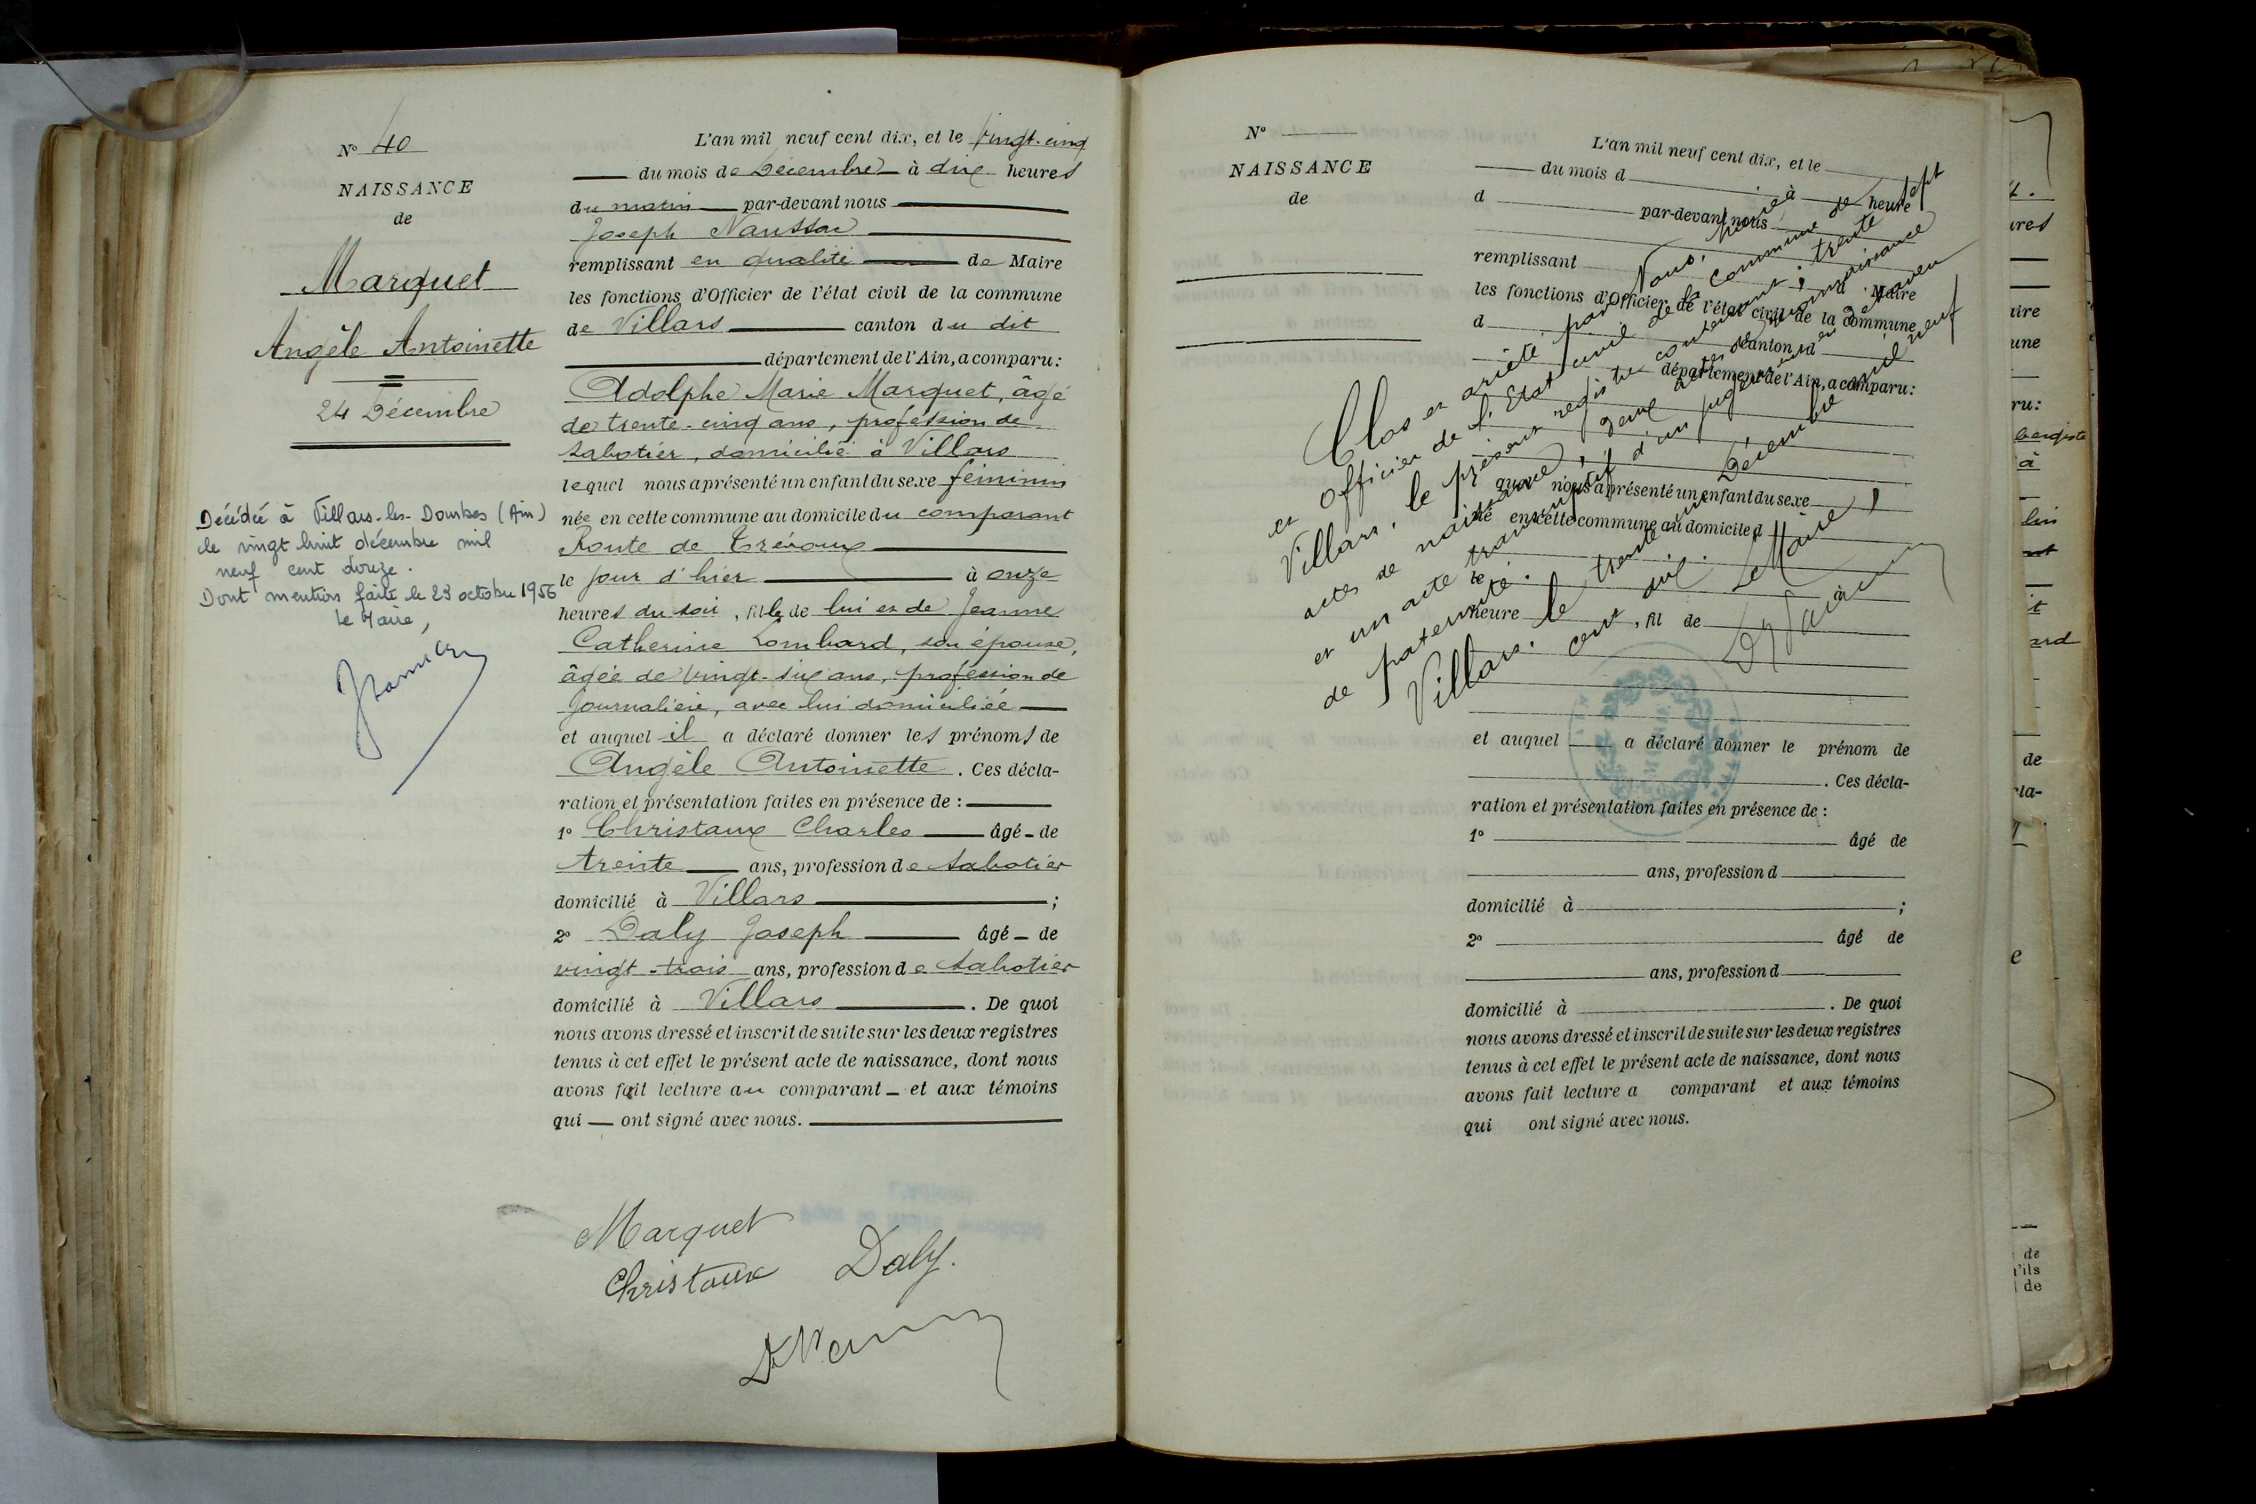 N° 40
NAISSANCE
de
Marquet
Angèle Antoinette
24 Décembre
Décédée à Villars-les-Dombes (Ain)
le vingt huit décembre mil
neuf cent douze.
Dont mention faite le 23 octobre 1956
Le Maire,
L'an mil neuf cent dix, et le vingt-cinq
du mois de Décembre à dix heures
du matin par-devant nous
Joseph
remplissant en qualité de Maire
les fonctions d'Officier de l'état civil de la commune
de Villars canton du dit
département de l'Ain, a comparu:
Adolphe Marie Marquet, âgé
de trente-cinq ans, profession de
sabotier, domicilié à Villars
lequel nous a présenté un enfant du sexe féminin
née en cette commune au domicile du comparant
Route de Trévoux
le jour d'hier à onze
heures du soir, fille de lui et de Jeanne
Catherine Lombard, son épouse,
âgée de vingt-six ans, profession de
journalière, avec lui domiciliée
et auquel il a déclaré donner les prénoms de
Angèle Antoinette. Ces décla-
ration et présentation faites en présence de :
1° Christaux Charles âgé de
trente ans, profession de sabotier
domicilié à Villars ;
2° Daly Joseph âgé de
vingt-trois ans, profession de sabotier
domicilié à Villars. De quoi
nous avons dressé et inscrit de suite sur les deux registres
tenus à cet effet le présent acte de naissance, dont nous
avons fait lecture au comparant et aux témoins
qui ont signé avec nous.
Marquet
Christaux Daly.
N°
NAISSANCE
de
L'an mil neuf cent dix, et le
du mois d à heure
d par-devant nous
remplissant d Maire
les fonctions d'Officier de l'état civil de la commune
d canton d
département de l'Ain, a comparu:
que nous a présenté un enfant du sexe
né en cette commune au domicile d
le à
heure , fil de
et auquel a déclaré donner le prénom de
. Ces décla-
ration et présentation faites en présence de :
1° âgé de
ans, profession d
domicilié à ;
2° âgé de
ans, profession d
domicilié à . De quoi
nous avons dressé et inscrit de suite sur les deux registres
tenus à cet effet le présent acte de naissance, dont nous
avons fait lecture a comparant et aux témoins
qui ont signé avec nous.
Clos et arrêté par Nous, Maire
et officier de l'Etat civil de la commune de
Villars, le présent registre contenant ; trente sept
actes de naissance, deux actes de reconnaissance
et un acte transcriptif d'un jugement en désaveu
de paternité.
Villars, le trente un Décembre mil neuf
cent dix.
Le Maire,